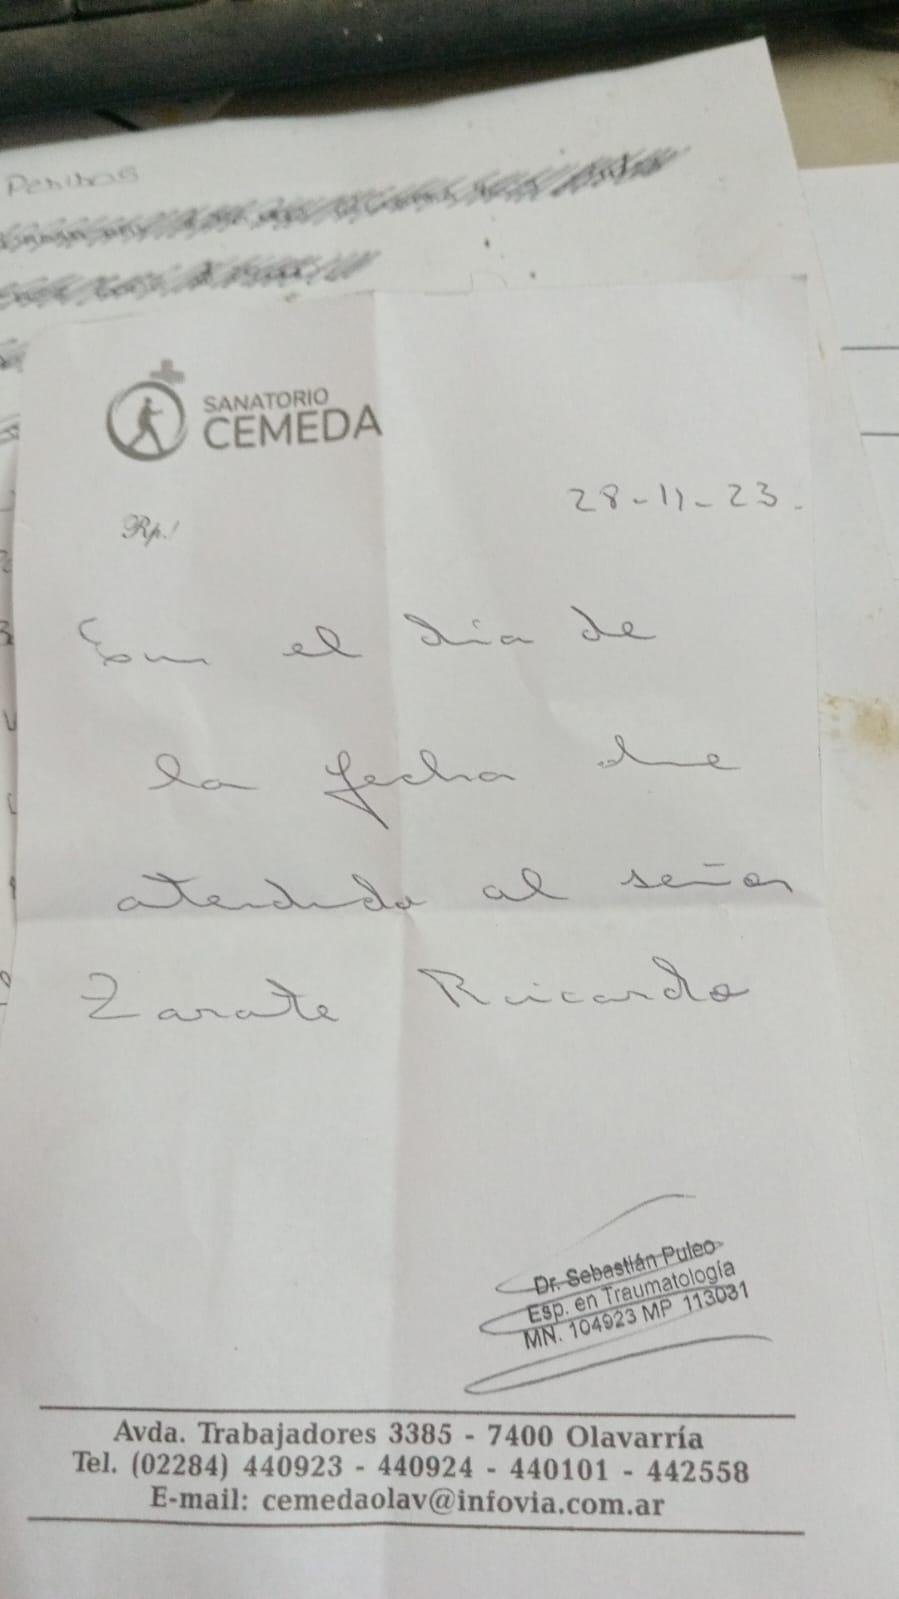 Penibos
SANATORIO
CEMEDA
28-11-23.
Rp./
el día de
la fecha he
atendido al señor
Zarate Ricardo
Dr. Sebastián Puleo
Esp. en Traumatología
MN. 104923 MP 113031
Avda. Trabajadores 3385 - 7400 Olavarría
Tel. (02284) 440923 - 440924 - 440101 - 442558
E-mail: cemedaolav@infovia.com.ar